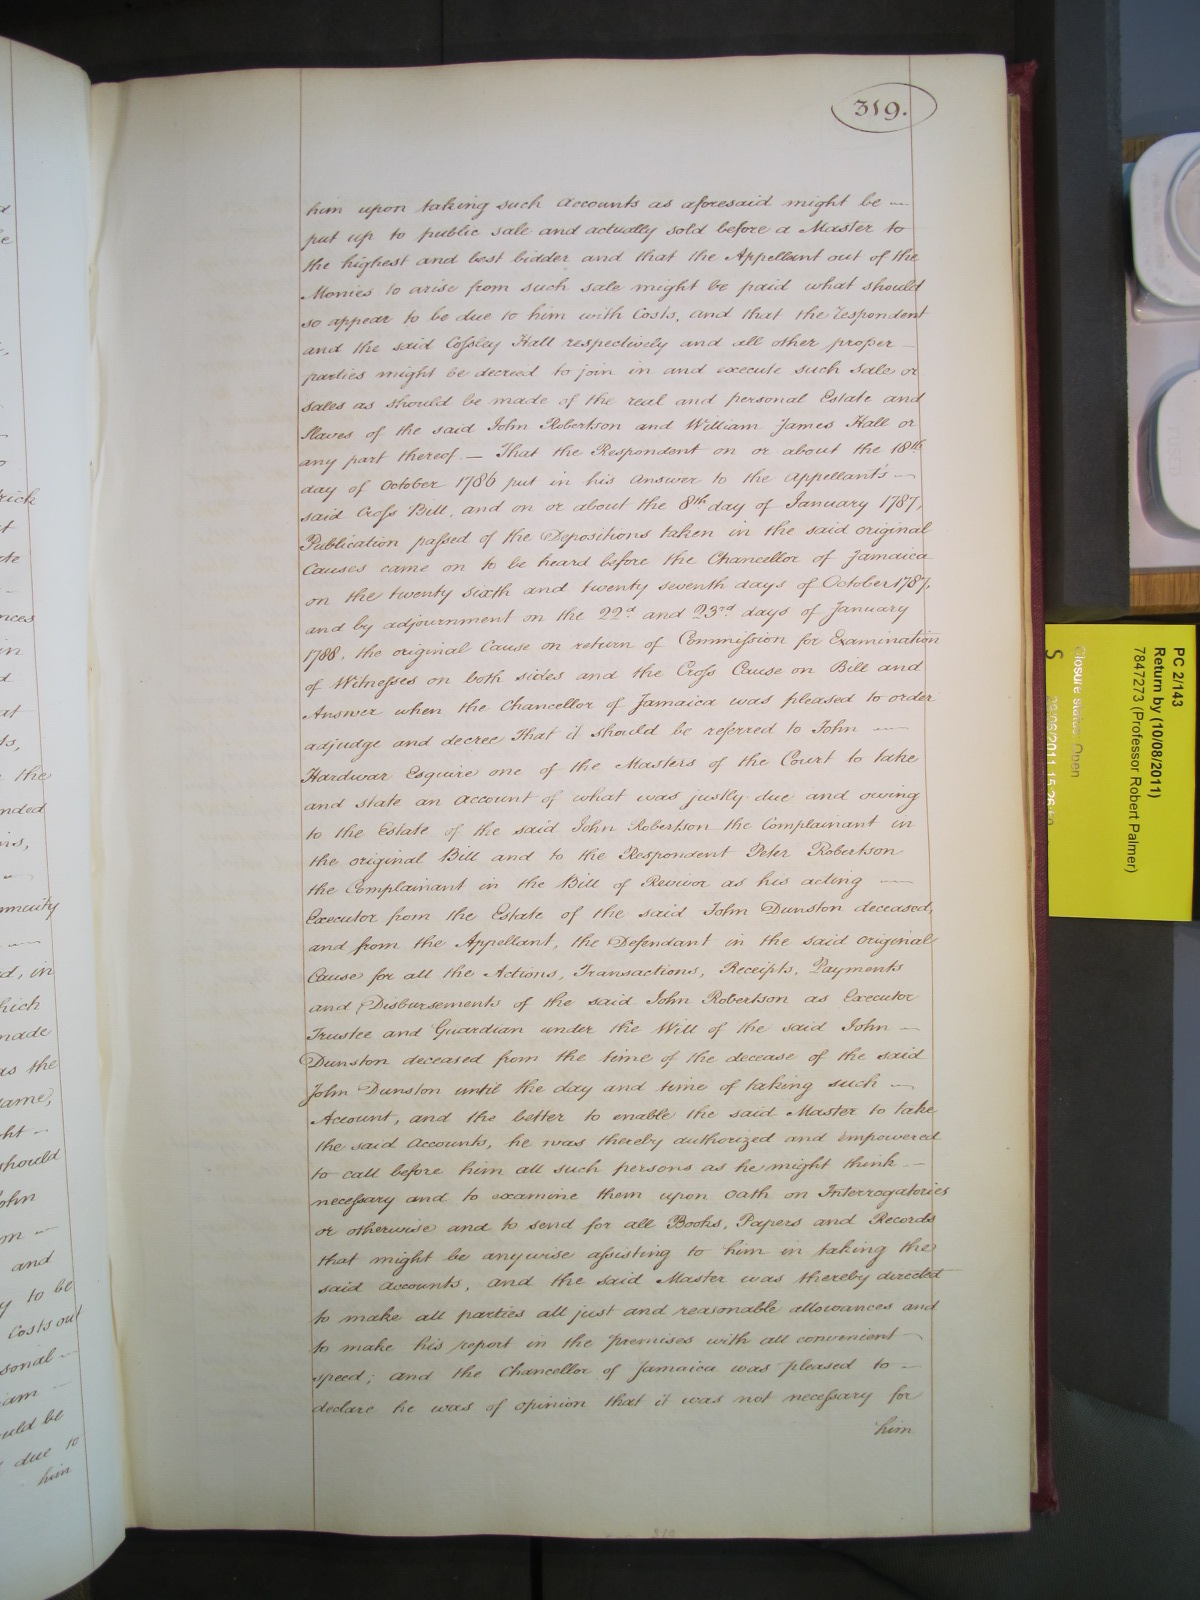 319.
him upon taking such Accounts as aforesaid might be —
put up to public sale and actually sold before a Master to
the highest and best bidder and that the Appellant out of the
Monies to arise from such sale might be paid what should
so appear to be due to him with Costs, and that the respondent
and the said Cossley Hall respectively and all other proper —
parties might be decreed to join in and execute such sale or
sales as should be made of the real and personal Estate and
Slaves of the said John Robertson and William James Hall or
any part thereof — That the Respondent on or about the 18th
day of October 1786 put in his Answer to the Appellant's —
said Cross Bill, and on or about the 8th day of January 1787,
Publication passed of the Depositions taken in the said original
Causes came on to be heard before the Chancellor of Jamaica
on the twenty sixth and twenty seventh days of October 1787,
and by adjournment on the 22d and 23rd days of January
1788, the original Cause on return of Commission for Examination
of Witnesses on both sides and the Cross Cause on Bill and
Answer when the Chancellor of Jamaica was pleased to order
adjudge and decree That it should be referred to John —
Hardwar Esquire one of the Masters of the Court to take
and state an Account of what was justly due and owing
to the Estate of the said John Robertson the Complainant in
the original Bill and to the Respondent Peter Robertson
the Complainant in the Bill of Revivor as his acting —
Executor from the Estate of the said John Dunston deceased,
and from the Appellant, the Defendant in the said original
Cause for all the Actions, Transactions, Receipts, Payments
and Disbursements of the said John Robertson as Executor
Trustee and Guardian under the Will of the said John —
Dunston deceased from the time of the decease of the said
John Dunston until the day and time of taking such —
Account, and the better to enable the said Master to take
the said Accounts, he was thereby authorized and empowered
to call before him all such persons as he might think —
necessary and to examine them upon Oath on Interrogatories
or otherwise and to send for all Books, Papers and Records
that might be anywise assisting to him in taking the
said Accounts, and the said Master was thereby directed
to make all parties all just and reasonable allowances and
to make his report in the premises with all convenient —
speed; and the Chancellor of Jamaica was pleased to —
declare he was of opinion that it was not necessary for
him
PC 2/143
Return by (10/08/2011)
7847273 (Professor Robert Palmer)
Closure status: Open
S